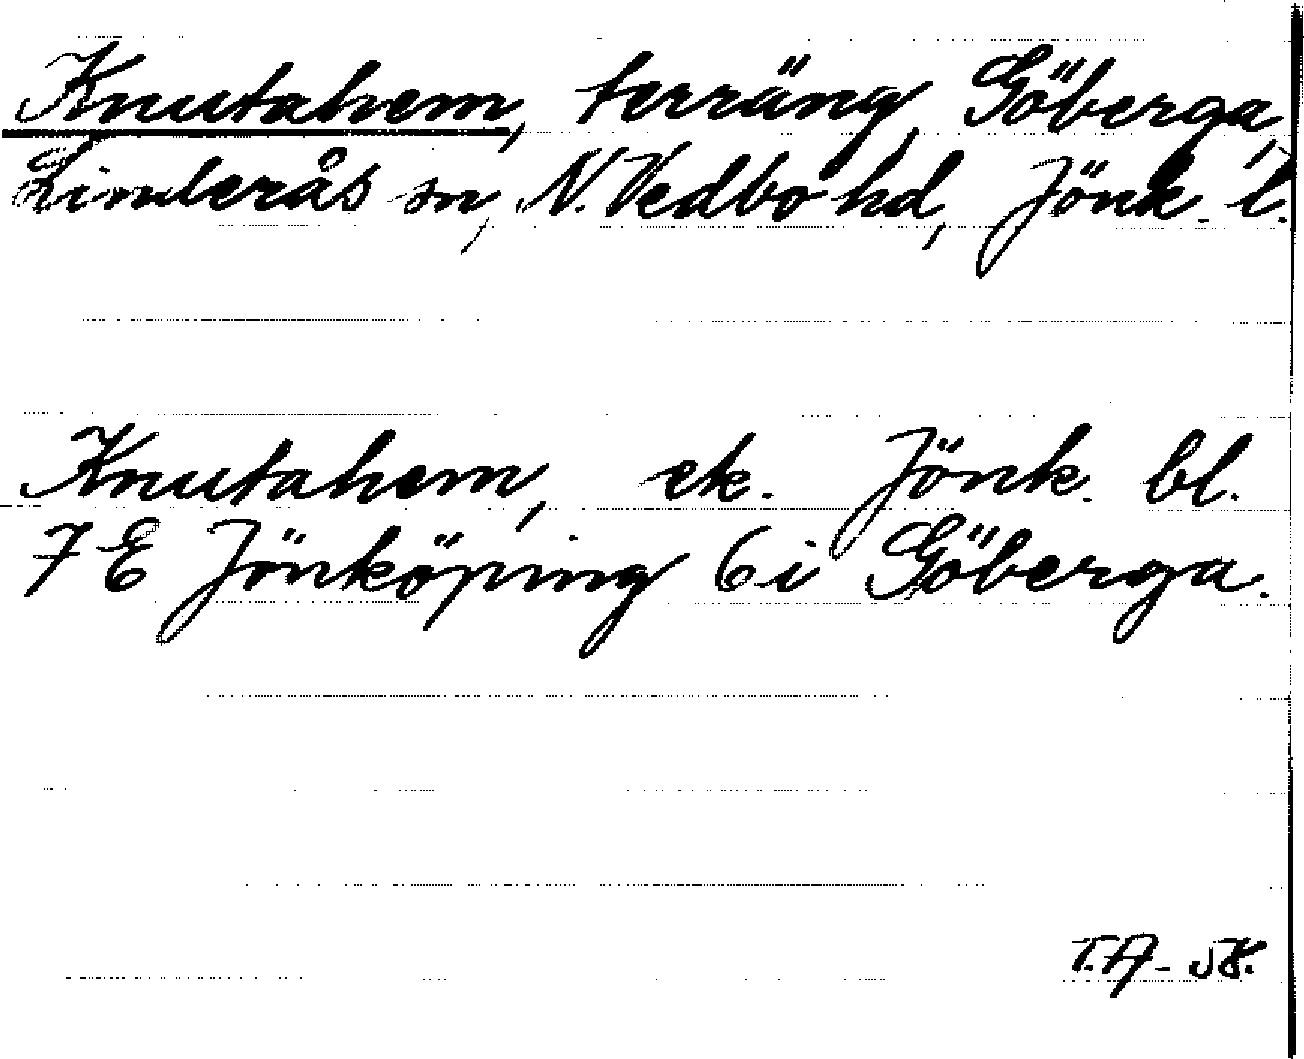 Knutahem, terräng, Göberga,
Linderås sn, N. Vedbo hd, Jönk. l.
Knutahem, ek. Jönk. bl.
7 E Jönköping 6 i Göberga.
T.A-58.